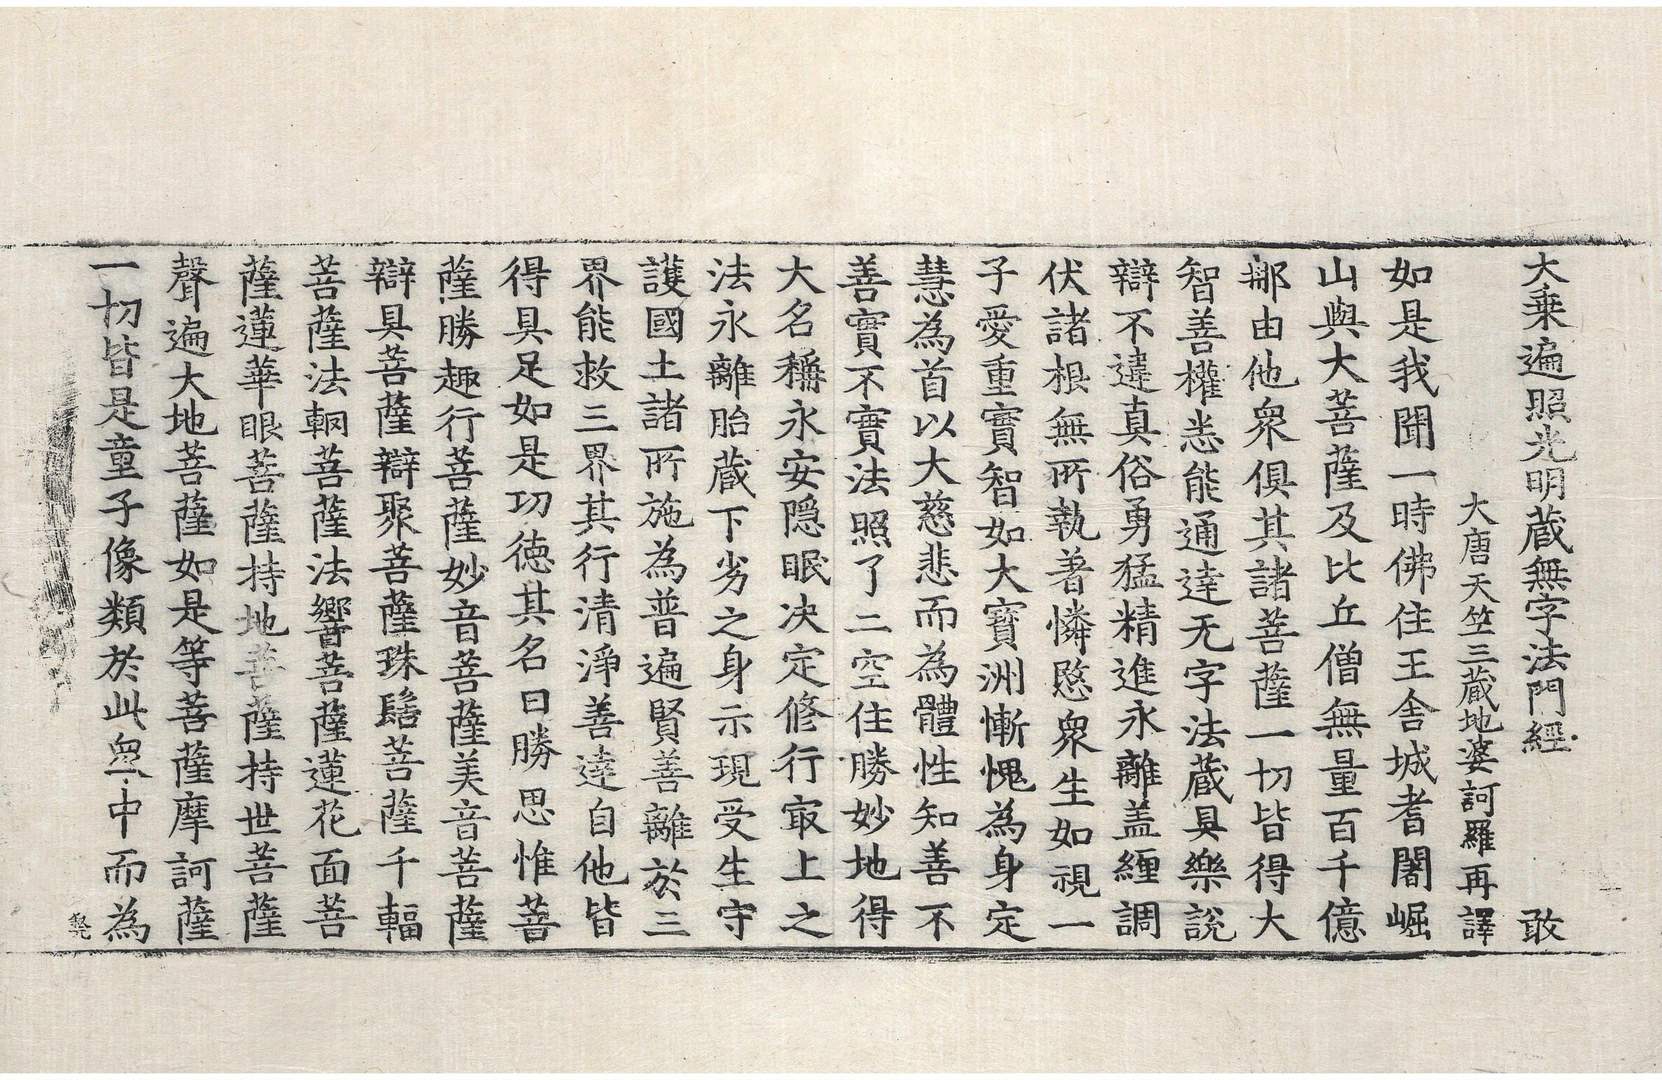 大乗遍照光明蔵無字法門經 敢
大唐天竺三蔵地婆訶羅再譯
如是我聞一時佛住王舎城耆闍崛
山與大菩薩及比丘僧無量百千億
那由他衆俱其諸菩薩一切皆得大
智善權悉能通達无字法蔵具樂說
辯不違真俗勇猛精進永離盖纏調
伏諸根無所執著憐愍衆生如視一
子愛重寶智如大寶洲慚愧為身定
慧為首以大慈悲而為體性知善不
善實不實法照了二空住勝妙地得
大名稱永安隠眠决定修行㝡上之
法永離胎蔵下劣之身示現受生守
護國土諸所施為普遍賢善離於三
界能救三界其行清淨善達自他皆
得具足如是功德其名曰勝思惟菩
薩勝趣行菩薩妙音菩薩美音菩薩
辯具菩薩辯聚菩薩珠髻菩薩千輻
菩薩法輞菩薩法響菩薩蓮花面菩
薩蓮華眼菩薩持地菩薩持世菩薩
聲遍大地菩薩如是等菩薩摩訶薩
一切皆是童子像類於此衆中而為